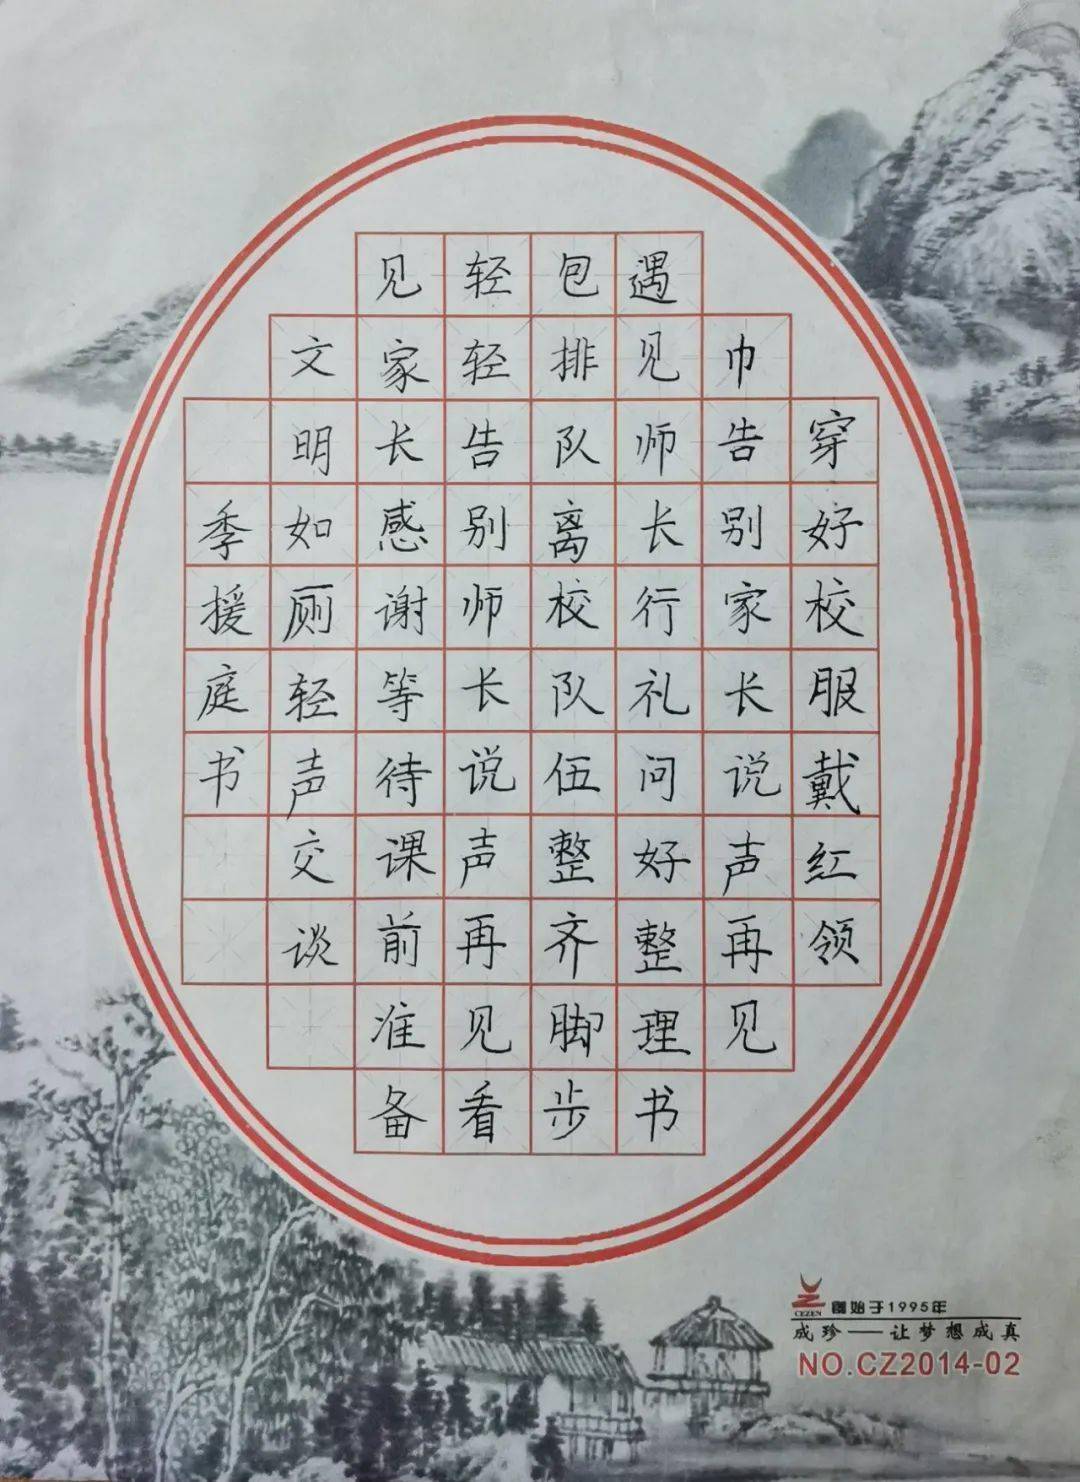 穿好校服戴红领
巾告别家长说声再见
遇见师长行礼问好整理书
包排队离校队伍整齐脚步
轻轻告别师长说声再见看
见家长感谢等待课前准备
文明如厕轻声交谈
季援庭书
CEZEN 創始于1995年
成珍——让梦想成真
NO.CZ2014-02